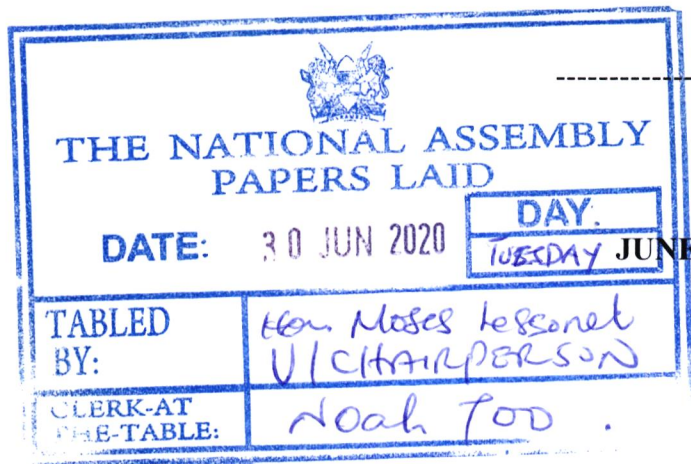 THE NATIONAL ASSEMBLY
PAPERS LAID
DATE: 30 JUN 2020
DAY.
TUESDAY
TABLED BY:
Hon. Moses Lessonet
V/CHAIRPERSON
CLERK-AT
THE-TABLE:
Noah Too.